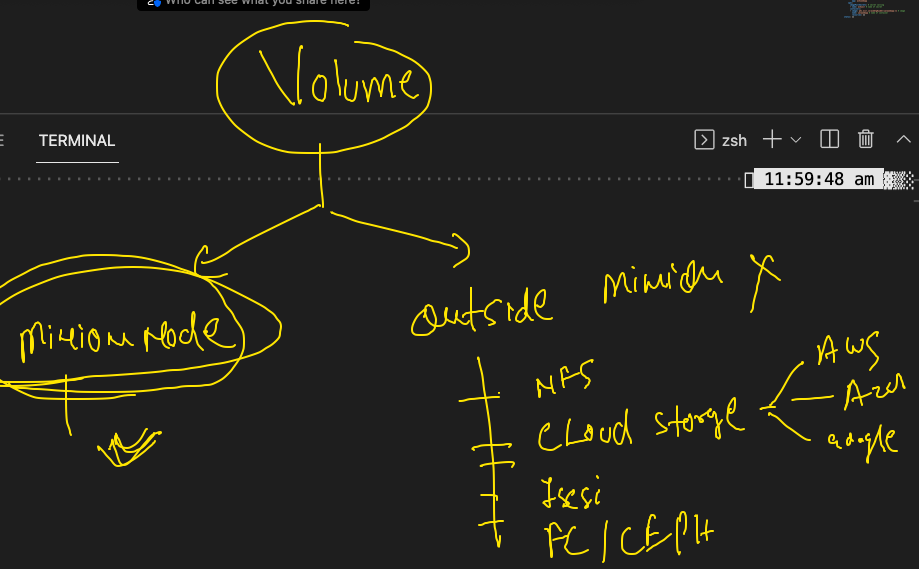 Who can see what you share here?
Volume
TERMINAL
zsh
11:59:48 am
Minion Node
outside minion
NFS
Cloud storge
AWS
Azur
google
Iscsi
FC / CEPH